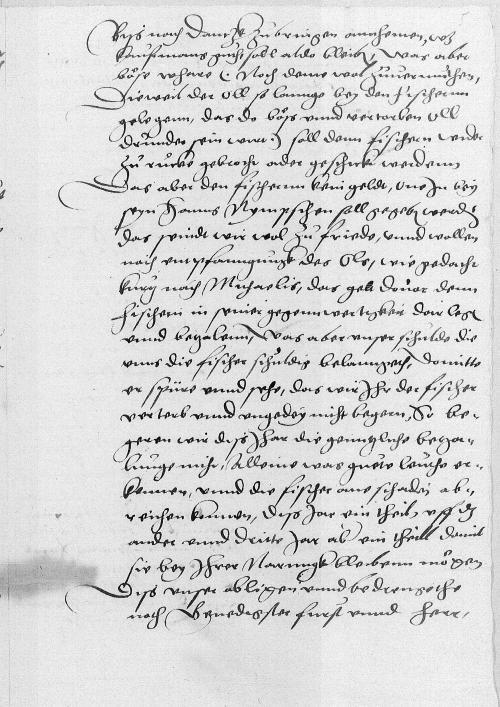 Biss noch Dantzk zubringen annhemen, wz
Kaufmans guth soll aldo bleib, Was aber
böse whare (: Noch deme wol zuuermuthen,
Dieweil der Oll so lannge bey den fischernn
gelegenn, das do böss vnnd vertorben Oll
drunder sein wirt :) soll denn fischern wider
zu rucke gebrocht ader geschickt werdenn
Das aber den fischernn kein geldt, one In bey
seyn Hanns Nympschen soll gegeb werd
das seindt wir wol zu friede, vnnd wollen
noch empfanngungk des Ols, wie gedacht
kurtz nach Michaelis, das gelt druor denn
fischern in seiner gegennwertigkeit dar leg
vnnd bezalenn, Was aber vnser schulde die
vnns die fischer schuldig belanngeth, domitte
er spüre vnnd sehe, das wir Ihr der fischer
verterb vnnd vngedey nicht begern, So be-
geren wir diss Jhar die genntzliche beza-
lunge nicht, Alleine was guete leuthe er-
kennen, vnnd die fischer ane schaden ab-
reichen kunnen, diss Jar ein theil, vff dz
ander vnnd dritte Jar ab ein theill domit
sie bey Ihrer Narungk bleibenn mögen
Diss vnser obligen vnnd bedrengethe
noch Genedigster furst vnnd Herr,